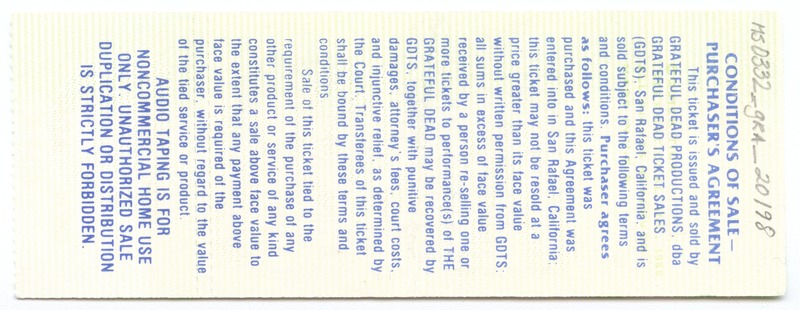 MSD332_gRA_20198
CONDITIONS OF SALE—
PURCHASER'S AGREEMENT
This ticket is issued and sold by
GRATEFUL DEAD PRODUCTIONS, dba
GRATEFUL DEAD TICKET SALES
(GDTS), San Rafael, California, and is
sold subject to the following terms
and conditions. Purchaser agrees
as follows: this ticket was
purchased and this Agreement was
entered into in San Rafael, California;
this ticket may not be resold at a
price greater than its face value
without written permission from GDTS;
all sums in excess of face value
received by a person re-selling one or
more tickets to performance(s) of THE
GRATEFUL DEAD may be recovered by
GDTS, together with punitive
damages, attorney's fees, court costs,
and injunctive relief, as determined by
the Court. Transferees of this ticket
shall be bound by these terms and
conditions
Sale of this ticket tied to the
requirement of the purchase of any
other product or service of any kind
constitutes a sale above face value to
the extent that any payment above
face value is required of the
purchaser, without regard to the value
of the tied service or product.
AUDIO TAPING IS FOR
NONCOMMERCIAL HOME USE
ONLY. UNAUTHORIZED SALE
DUPLICATION OR DISTRIBUTION
IS STRICTLY FORBIDDEN.